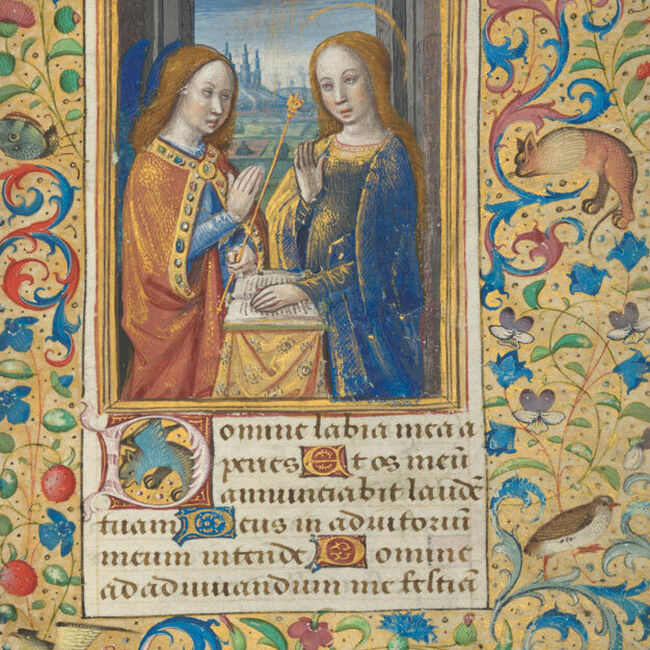 Domine labia mea a
peries Et os meū
annunciabit laudē
tuam Deus in adiutoriū
meum intende Domine
ad adiuuandum me festiā